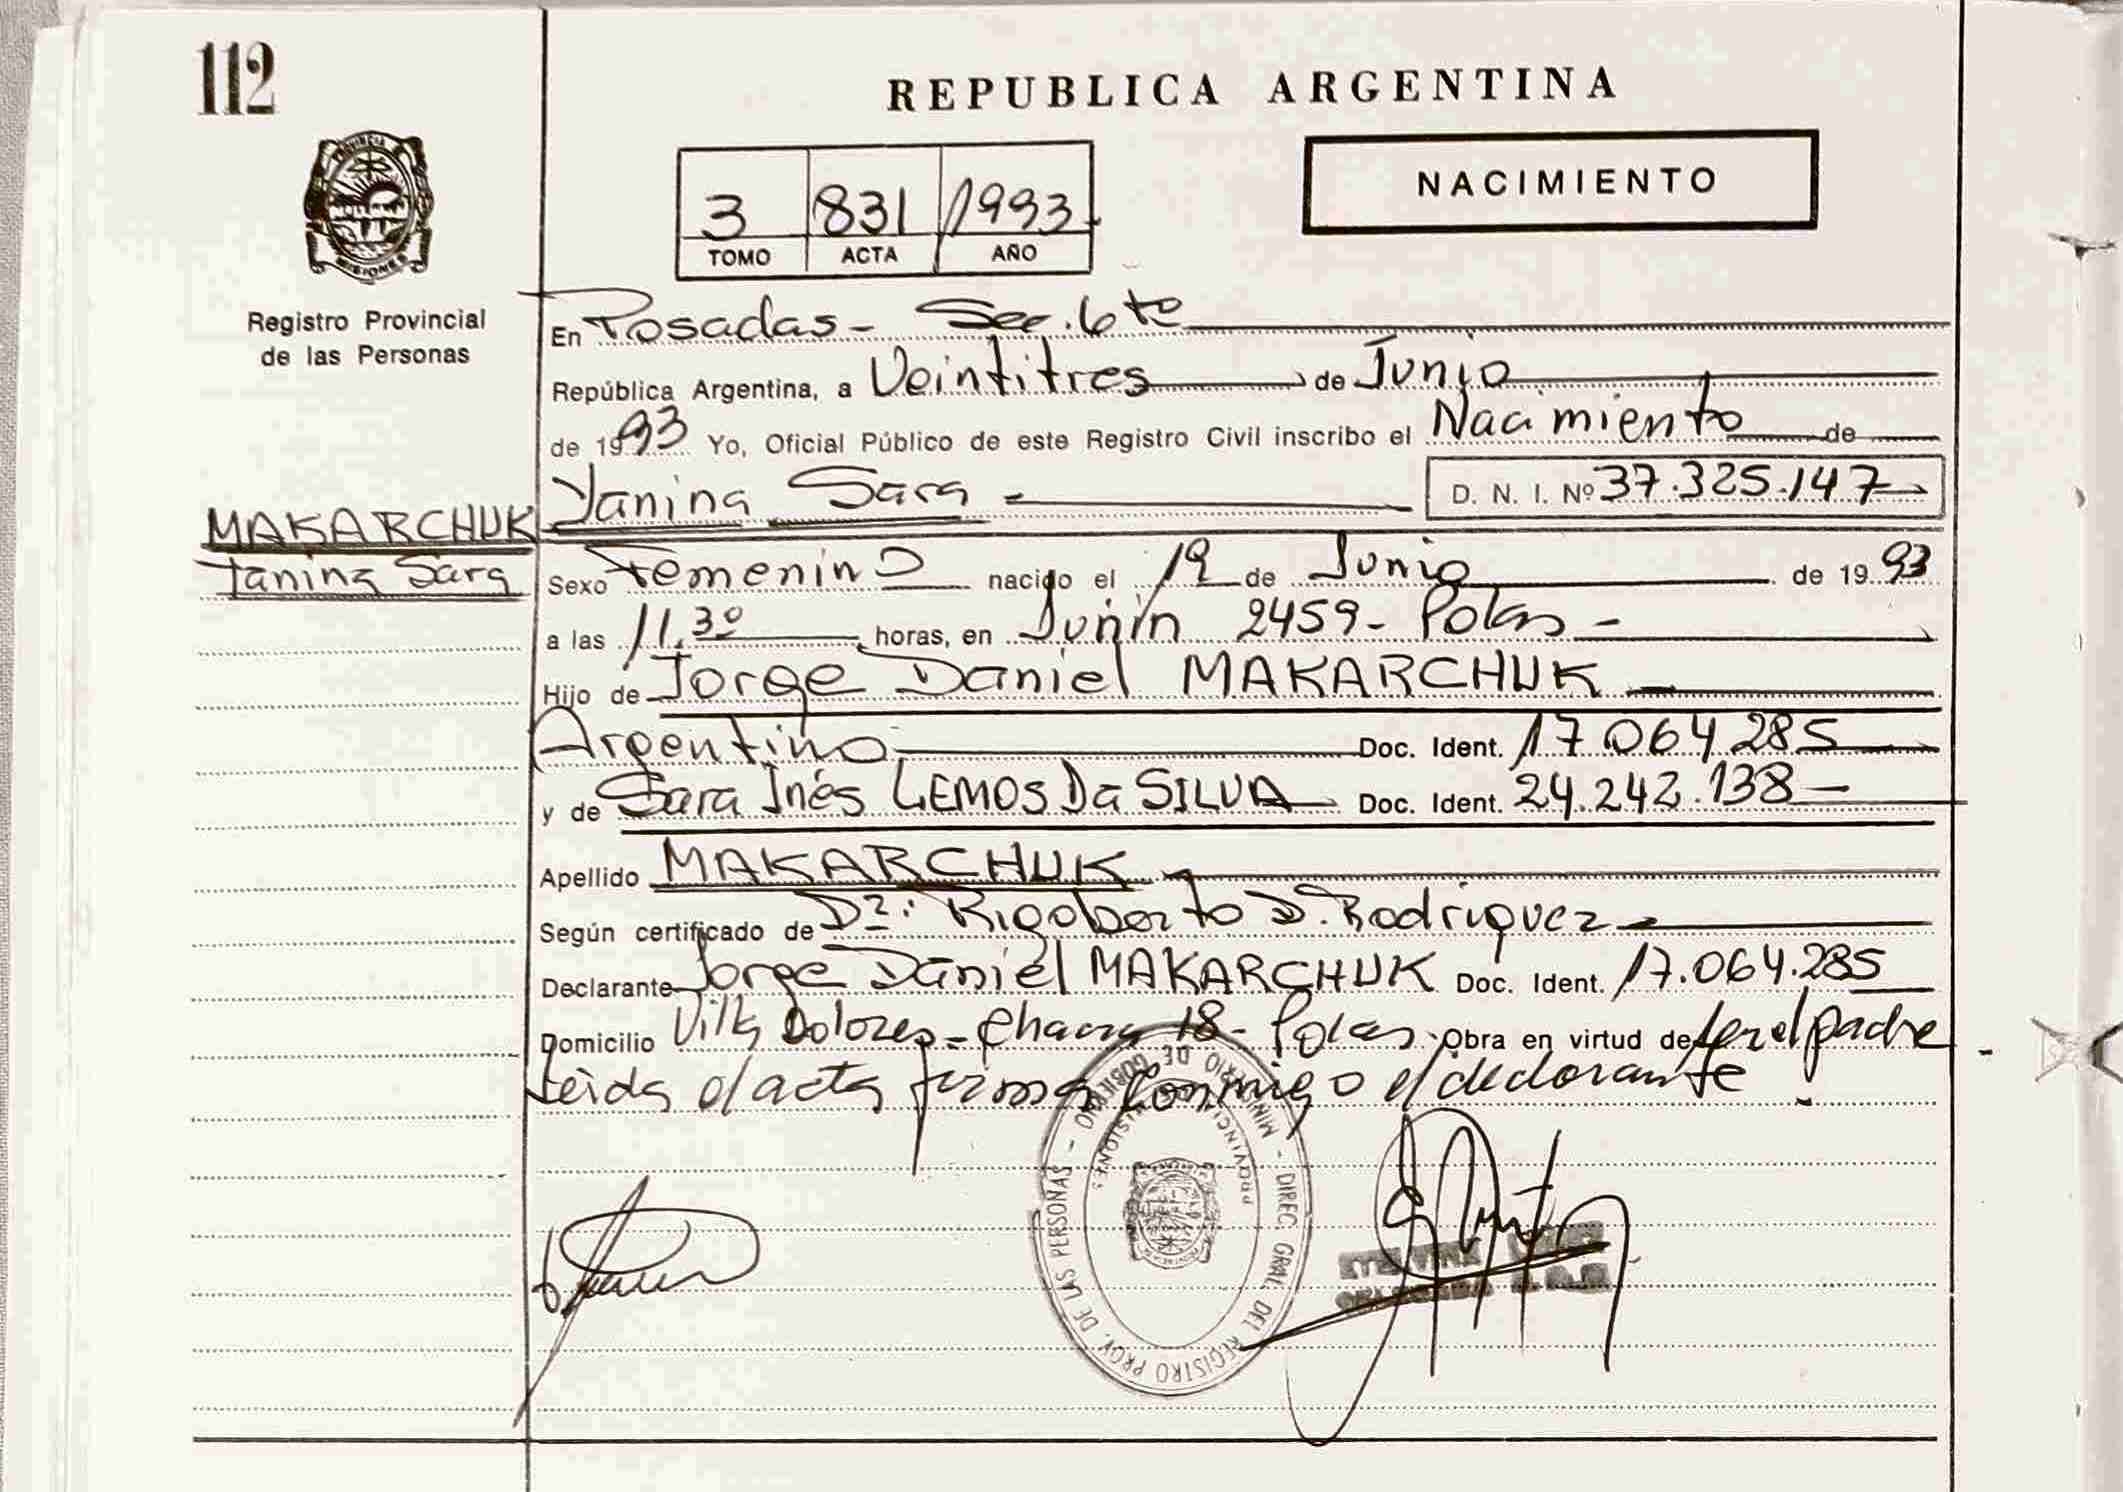 112
REPUBLICA ARGENTINA
NACIMIENTO
3 831 1993
TOMO ACTA AÑO
PROVINCIA DE
MISIONES
Registro Provincial
de las Personas
En Posadas - Sec. 6ta
República Argentina, a Veintitres de Junio
de 1993 Yo, Oficial Público de este Registro Civil inscribo el Nacimiento de
Yanina Sara - D. N. I. Nº 37.325.147
MAKARCHUK
Yanina Sara
Sexo Femenino nacido el 19 de Junio de 1993
a las 11.30 horas, en Junin 2459 - Pdas -
Hijo de Jorge Daniel MAKARCHUK
Argentino Doc. Ident. 17.064.285
y de Sara Inés LEMOS Da SILVA Doc. Ident. 24.242.138 -
Apellido MAKARCHUK
Según certificado de Dr: Rigoberto D. Rodriguez
Declarante Jorge Daniel MAKARCHUK Doc. Ident. 17.064.285
Domicilio Villa Dolores - Chacra 18 - Pdas. Obra en virtud de ser el padre
Leida el acta firma conmigo el declarante
MINISTERIO DE GOBIERNO - DIREC. GRAL. DEL REGISTRO PROV. DE LAS PERSONAS -
PROVINCIA MISIONES